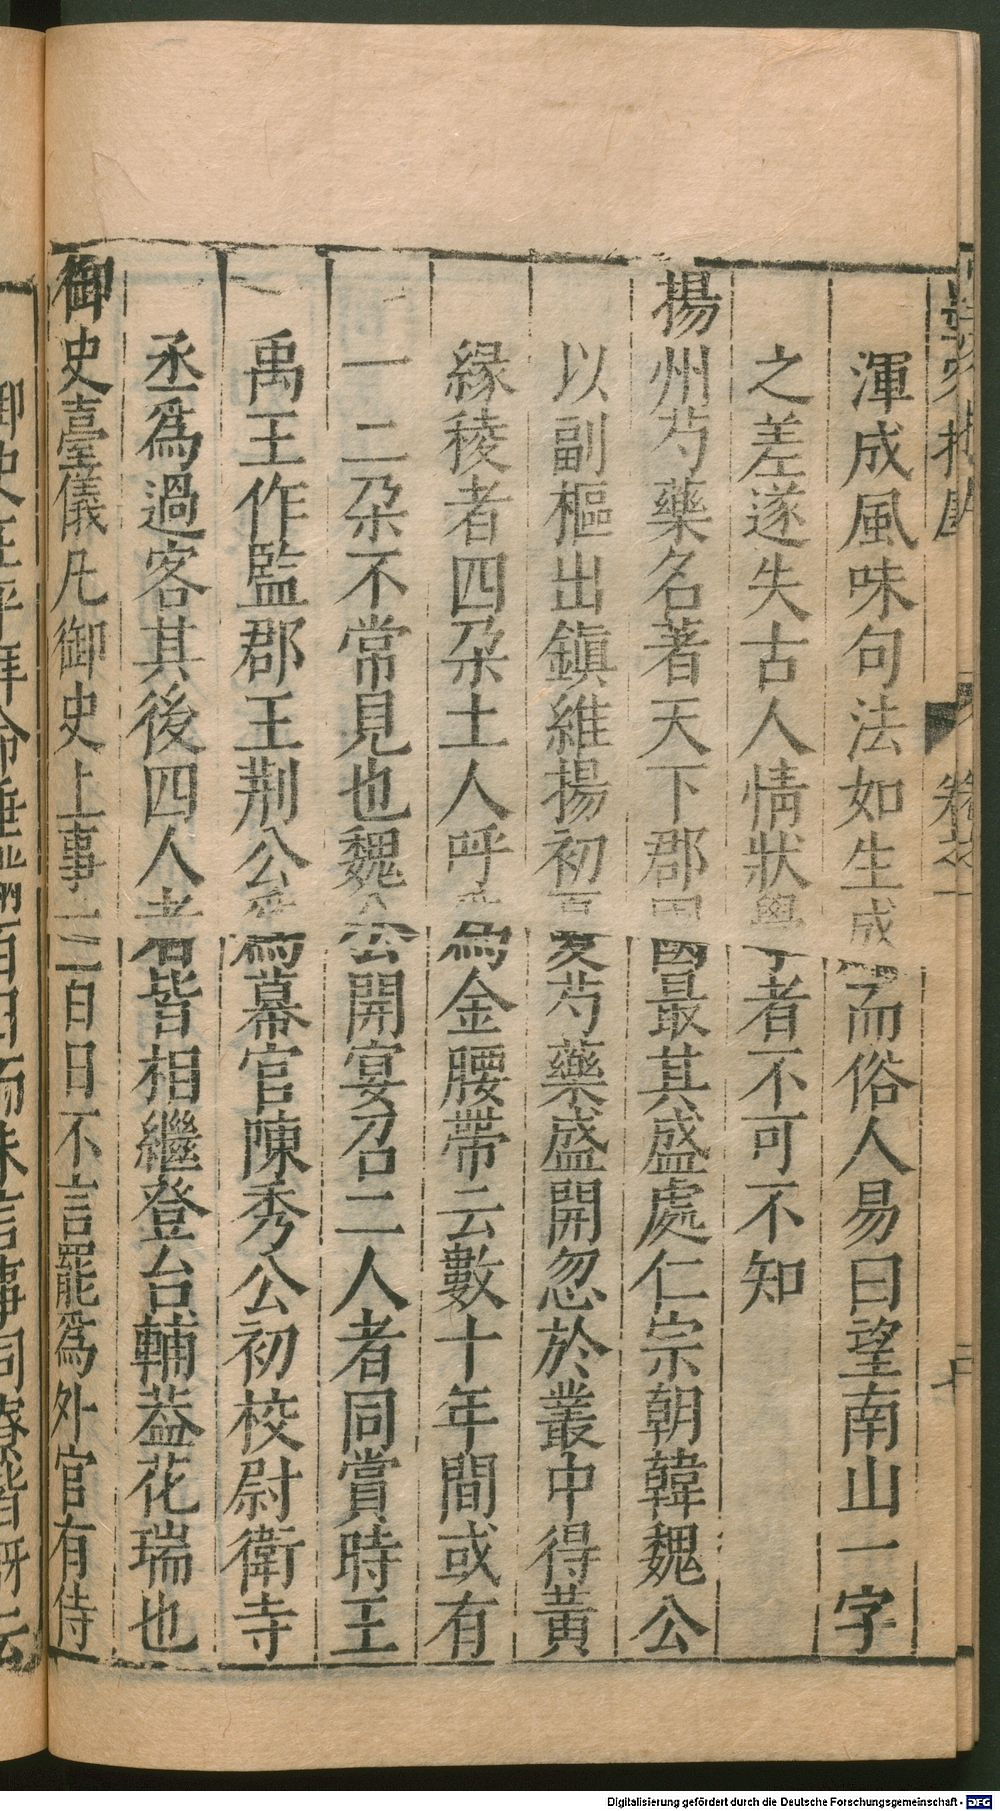 渾成風味句法如生成而俗人易曰望南山一字
之差遂失古人情狀學者不可不知
揚州芍藥名著天下郡國最其盛處仁宗朝韓魏公
以副樞出鎮維揚初夏芍藥盛開忽於叢中得黃
緣稜者四朶土人呼為金腰帶云數十年間或有
一二朶不常見也魏公開宴召二人者同賞時王
禹王作監郡王荆公為幕官陳秀公初校尉衛寺
丞為過客其後四人者皆相繼登台輔葢花瑞也
御史臺儀凡御史上事一百日不言罷爲外官有侍
Digitalisierung gefördert durch die Deutsche Forschungsgemeinschaft - DFG